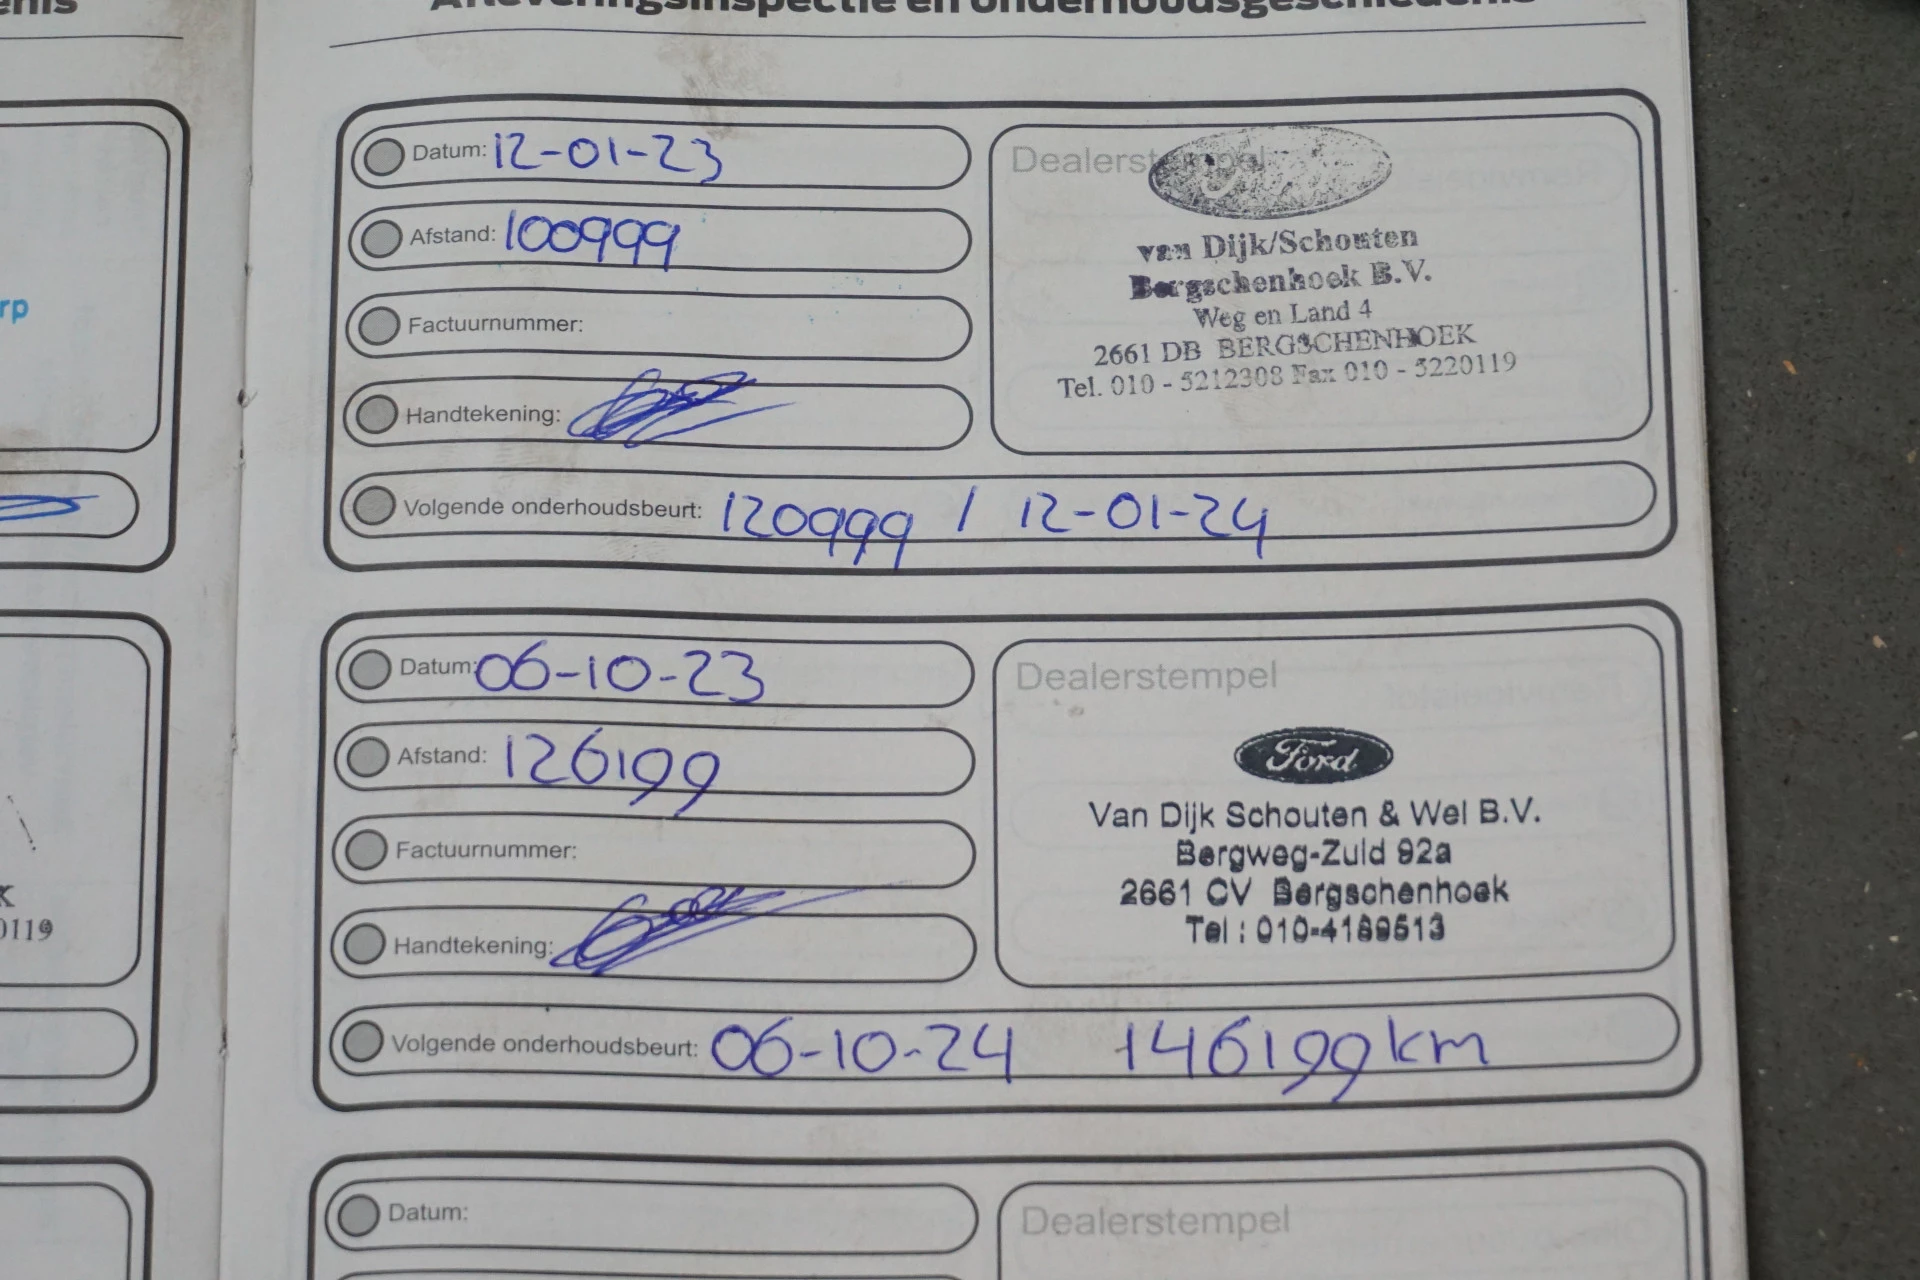 Afleveringsinspectie en onderhoudsgeschiedenis
Datum: 12-01-23
Afstand: 100999
Factuurnummer:
Handtekening:
Volgende onderhoudsbeurt: 120999 / 12-01-24
Dealerstempel
van Dijk/Schouten
Bergschenhoek B.V.
Weg en Land 4
2661 DB BERGSCHENHOEK
Tel. 010 - 5212308 Fax 010 - 5220119
Datum: 06-10-23
Afstand: 126199
Factuurnummer:
Handtekening:
Volgende onderhoudsbeurt: 06-10-24 146199 km
Dealerstempel
Ford
Van Dijk Schouten & Wel B.V.
Bergweg-Zuid 92a
2661 CV Bergschenhoek
Tel : 010-4189513
Datum:
Dealerstempel